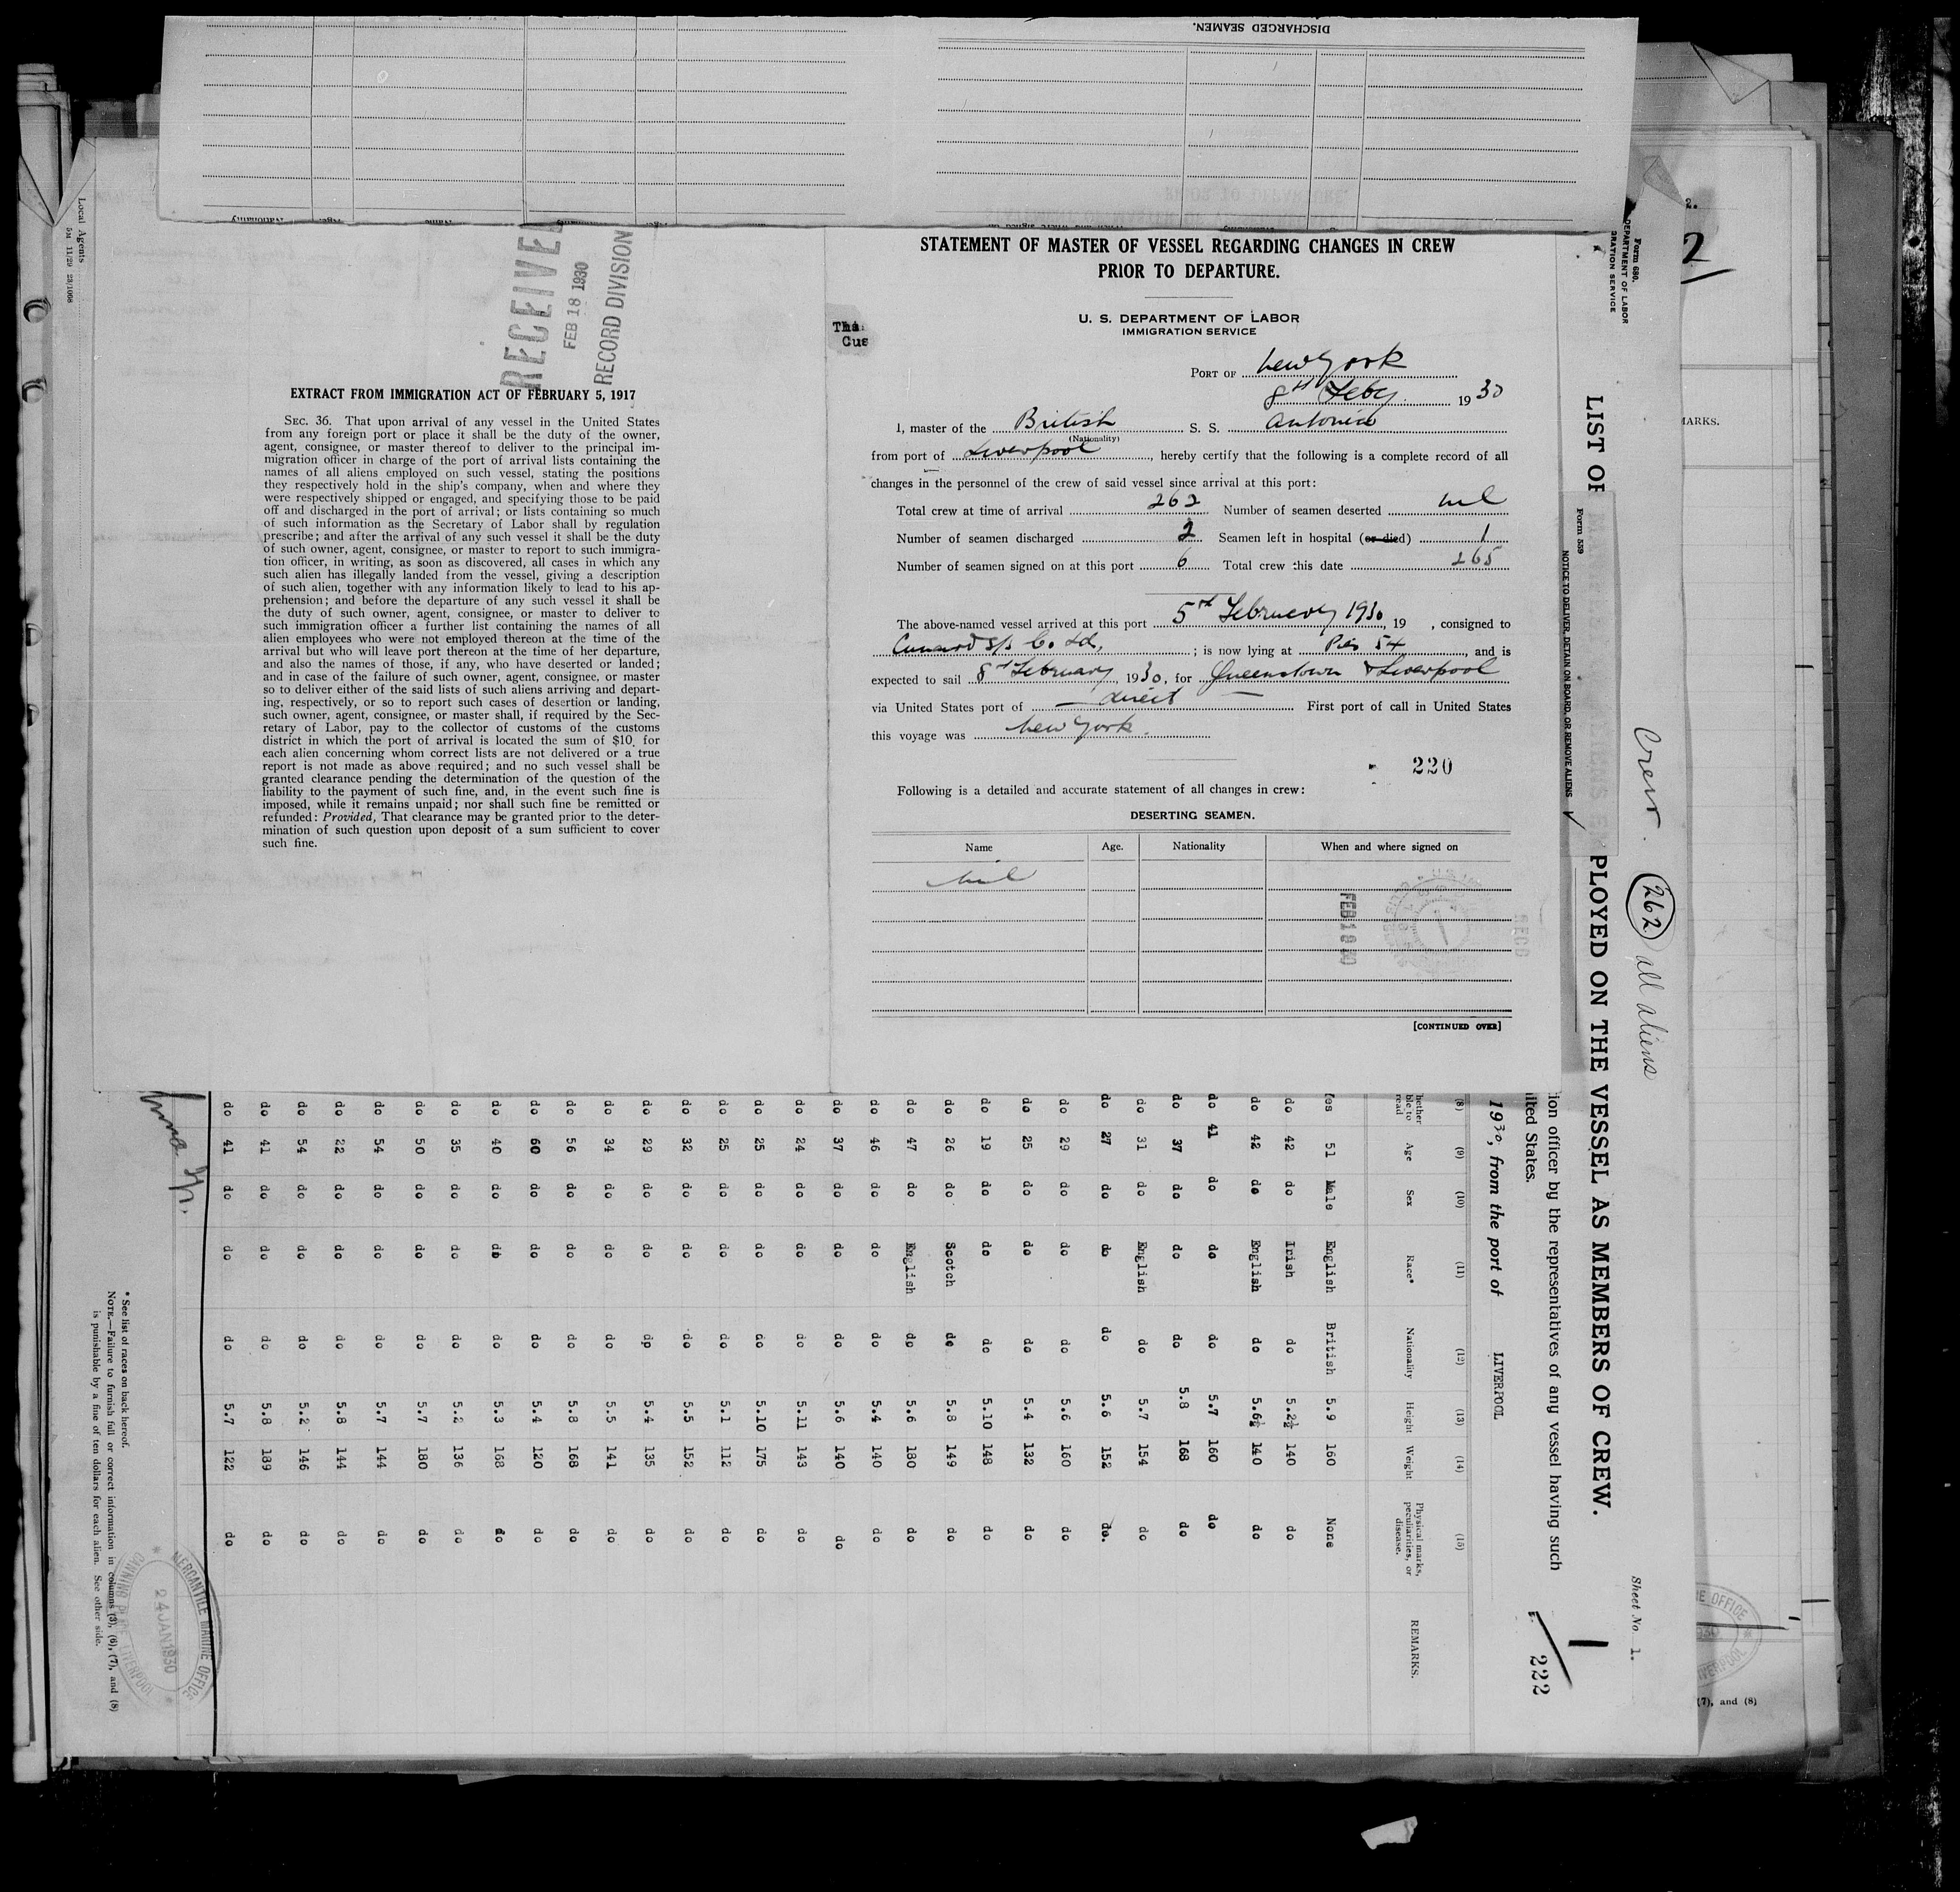 DISCHARGED SEAMEN.
RECEIVED
FEB 18 1930
RECORD DIVISION
EXTRACT FROM IMMIGRATION ACT OF FEBRUARY 5, 1917
SEC. 36. That upon arrival of any vessel in the United States
from any foreign port or place it shall be the duty of the owner,
agent, consignee, or master thereof to deliver to the principal im-
migration officer in charge of the port of arrival lists containing the
names of all aliens employed on such vessel, stating the positions
they respectively hold in the ship's company, when and where they
were respectively shipped or engaged, and specifying those to be paid
off and discharged in the port of arrival; or lists containing so much
of such information as the Secretary of Labor shall by regulation
prescribe; and after the arrival of any such vessel it shall be the duty
of such owner, agent, consignee, or master to report to such immigra-
tion officer, in writing, as soon as discovered, all cases in which any
such alien has illegally landed from the vessel, giving a description
of such alien, together with any information likely to lead to his ap-
prehension; and before the departure of any such vessel it shall be
the duty of such owner, agent, consignee, or master to deliver to
such immigration officer a further list containing the names of all
alien employees who were not employed thereon at the time of the
arrival but who will leave port thereon at the time of her departure,
and also the names of those, if any, who have deserted or landed;
and in case of the failure of such owner, agent, consignee, or master
so to deliver either of the said lists of such aliens arriving and depart-
ing, respectively, or so to report such cases of desertion or landing,
such owner, agent, consignee, or master shall, if required by the Sec-
retary of Labor, pay to the collector of customs of the customs
district in which the port of arrival is located the sum of $10 for
each alien concerning whom correct lists are not delivered or a true
report is not made as above required; and no such vessel shall be
granted clearance pending the determination of the question of the
liability to the payment of such fine, and, in the event such fine is
imposed, while it remains unpaid; nor shall such fine be remitted or
refunded: Provided, That clearance may be granted prior to the deter-
mination of such question upon deposit of a sum sufficient to cover
such fine.
STATEMENT OF MASTER OF VESSEL REGARDING CHANGES IN CREW
PRIOR TO DEPARTURE.
U. S. DEPARTMENT OF LABOR
IMMIGRATION SERVICE
PORT OF New York
8th Feby. 1930
I, master of the British S. S. Antonia
(Nationality)
from port of Liverpool, hereby certify that the following is a complete record of all
changes in the personnel of the crew of said vessel since arrival at this port:
Total crew at time of arrival 262 Number of seamen deserted nil
Number of seamen discharged 2 Seamen left in hospital (or died) 1
Number of seamen signed on at this port 6 Total crew this date 265
The above-named vessel arrived at this port 5th February 1930, 19 , consigned to
Cunard S/S Co Ld, ; is now lying at Pier 54, and is
expected to sail 8th February, 1930, for Queenstown & Liverpool
via United States port of direct First port of call in United States
this voyage was New York.
220
Following is a detailed and accurate statement of all changes in crew:
DESERTING SEAMEN.
Name Age. Nationality When and where signed on
nil
FEB 18 30
RECD
[CONTINUED OVER]
Local Agents
5M 11/29 23/1068
Form 680.
DEPARTMENT OF LABOR
GRATION SERVICE
2.
2
MARKS.
Form 559
NOTICE TO DELIVER, DETAIN ON BOARD, OR REMOVE ALIENS
Crew. 262 all aliens
Sheet No. 1.
LIST OF PLOYED ON THE VESSEL AS MEMBERS OF CREW.
1
222
ion officer by the representatives of any vessel having such
ited States.
1930, from the port of LIVERPOOL
(8) (9) (10) (11) (12) (13) (14) (15)
hether ble to read Age Sex Race* Nationality Height Weight Physical marks, peculiarities, or disease. REMARKS.
es 51 Male English British 5.9 160 None
do 42 do Irish do 5.2½ 140 do
do 42 do English do 5.6½ 140 do
do 41 do do do 5.7 160 do
do 37 do do do 5.8 168 do
do 31 do English do 5.7 154 do
do 27 do do do 5.6 152 do.
do 29 do do do 5.6 160 do
do 25 do do do 5.4 132 do
do 19 do do do 5.10 148 do
do 26 do Scotch do 5.8 149 do
do 47 do English do 5.6 180 do
do 46 do do do 5.4 140 do
do 37 do do do 5.6 140 do
do 24 do do do 5.11 143 do
do 25 do do do 5.10 175 do
do 25 do do do 5.1 112 do
do 32 do do do 5.5 152 do
do 29 do do do 5.4 135 do
do 34 do do do 5.5 141 do
do 56 do do do 5.8 168 do
do 60 do do do 5.4 120 do
do 40 do do do 5.3 168 do
do 35 do do do 5.2 136 do
do 50 do do do 5.7 180 do
do 54 do do do 5.7 144 do
do 22 do do do 5.8 144 do
do 54 do do do 5.2 146 do
do 41 do do do 5.8 189 do
do 41 do do do 5.7 122 do
* See list of races on back hereof.
NOTE.—Failure to furnish full or correct information in columns (3), (6), (7), and (8)
is punishable by a fine of ten dollars for each alien. See other side.
MERCANTILE MARINE OFFICE
24 JAN 1930
CANNING PLACE LIVERPOOL
(7), and (8)